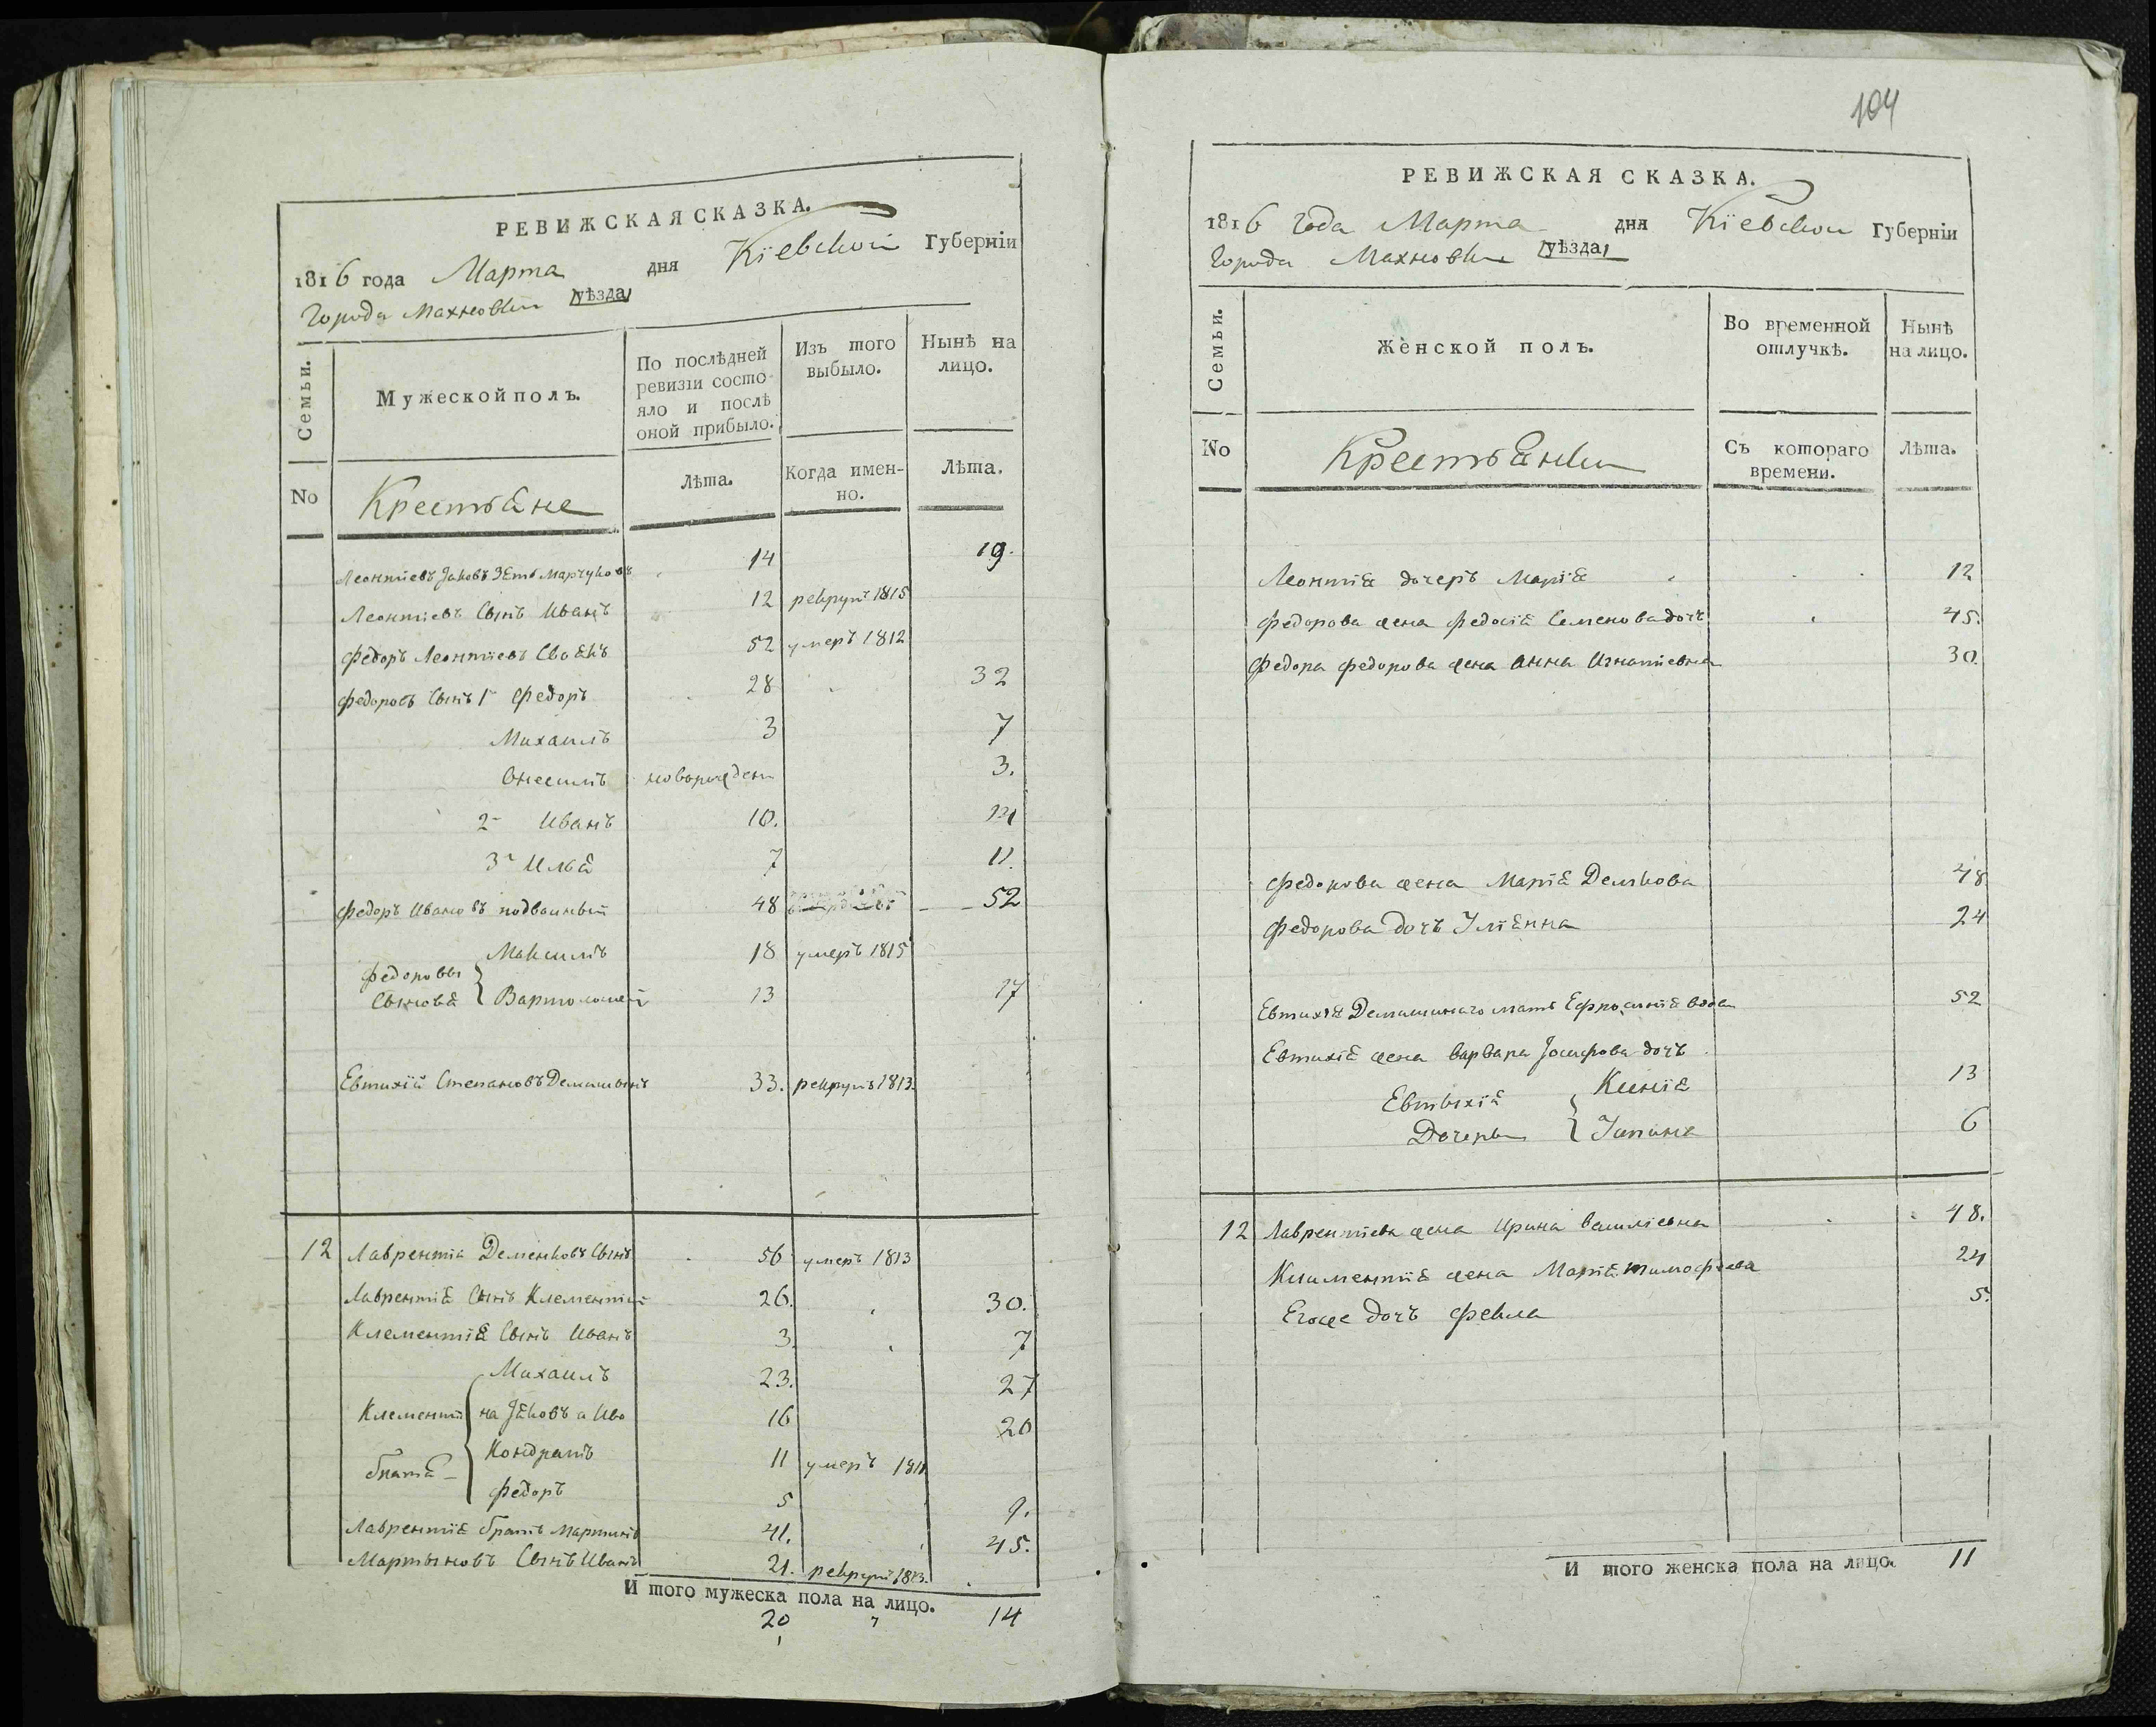 104
РЕВИЖСКАЯ СКАЗКА.
1816 года Марта дня Кіевской Губерніи
Города Махновки уѣзда
Семьи.
Мужеской полъ.
По послѣдней ревизіи состояло и послѣ оной прибыло.
Изъ того выбыло.
Нынѣ на лицо.
No
Крестьяне
Лѣта.
Когда именно.
Лѣта.
Леонтіевъ Яковъ Зять Марчуковъ 14 19.
Леонтіевъ Сынъ Иванъ 12 рекрутъ 1815
Федоръ Леонтіевъ Своякъ 52 умеръ 1812
Федоровъ Сынъ 1й Федоръ 28 32
Михаилъ 3 7
Онесимъ новорожден 3.
2й Иванъ 10. 14
3й Илья 7 11.
Федоръ Ивановъ подвойный 48 52
Максимъ 18 умеръ 1815
Федоровы Сыновья
Вартоломей 13 17
Евтихій Степановъ 33. рекрутъ 1813.
12 Лаврентій Деменковъ Сынъ 56 умеръ 1813
Лаврентія Сынъ Клементій 26. 30.
Клементія Сынъ Иванъ 3. 7
Михаилъ 23. 27
Клементія на Яковъ 16 20
Кондратъ 11 умеръ 1811
братья
Федоръ 5 9.
Лаврентія братъ Мартинъ 41. 45.
Мартыновъ Сынъ Иванъ 21. рекрутъ 1813.
И того мужеска пола на лицо.
20 7 14
РЕВИЖСКАЯ СКАЗКА.
1816 года Марта дня Кіевской Губерніи
Города Махновки уѣзда
Семьи.
Женской полъ.
Во временной отлучкѣ.
Нынѣ на лицо.
No
Крестьянки
Съ котораго времени.
Лѣта.
Леонтія дочеръ Марія 12
Федорова жена Федосія Семенова дочъ 45.
Федора Федорова жена Анна Игнатіевна 30.
Федорова жена Марія Демкова 48
Федорова дочъ Уліянна 24
Евтихія мать Ефросинія вдова 52
Евтихія жена Варвара Іосифова дочъ
Ксенія 13
Евтыхія
Дочеры
6
12 Лаврентіева жена Ирина Василіевна 48.
Климентія жена Марія Тимофѣева 24
Егоже дочъ Фекла 5.
И того женска пола на лицо. 11